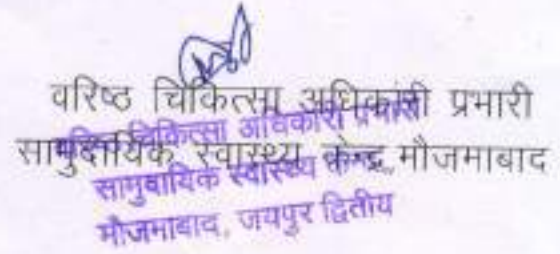 वरिष्ठ चिकित्सा अधिकारी प्रभारी
सामुदायिक स्वास्थ्य केन्द्र मौजमाबाद
चिकित्सा अधिकारी प्रभारी
सामुदायिक स्वास्थ्य केन्द्र
मौजमाबाद, जयपुर द्वितीय